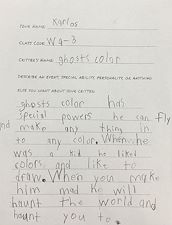 YOUR NAME: Karlos
CLASS CODE: W9-3
CRITTER'S NAME: ghosts color
DESCRIBE AN EVENT, SPECIAL ABILITY, PERSONALITY, OR ANYTHING
ELSE YOU WANT ABOUT YOUR CRITTER:
ghosts color has
special powers he can fly
nd make any thing in
to any color. When he
was a kid he liked
colors and like to
draw. When you make
him mad he will
haunt the world and
haunt you to.